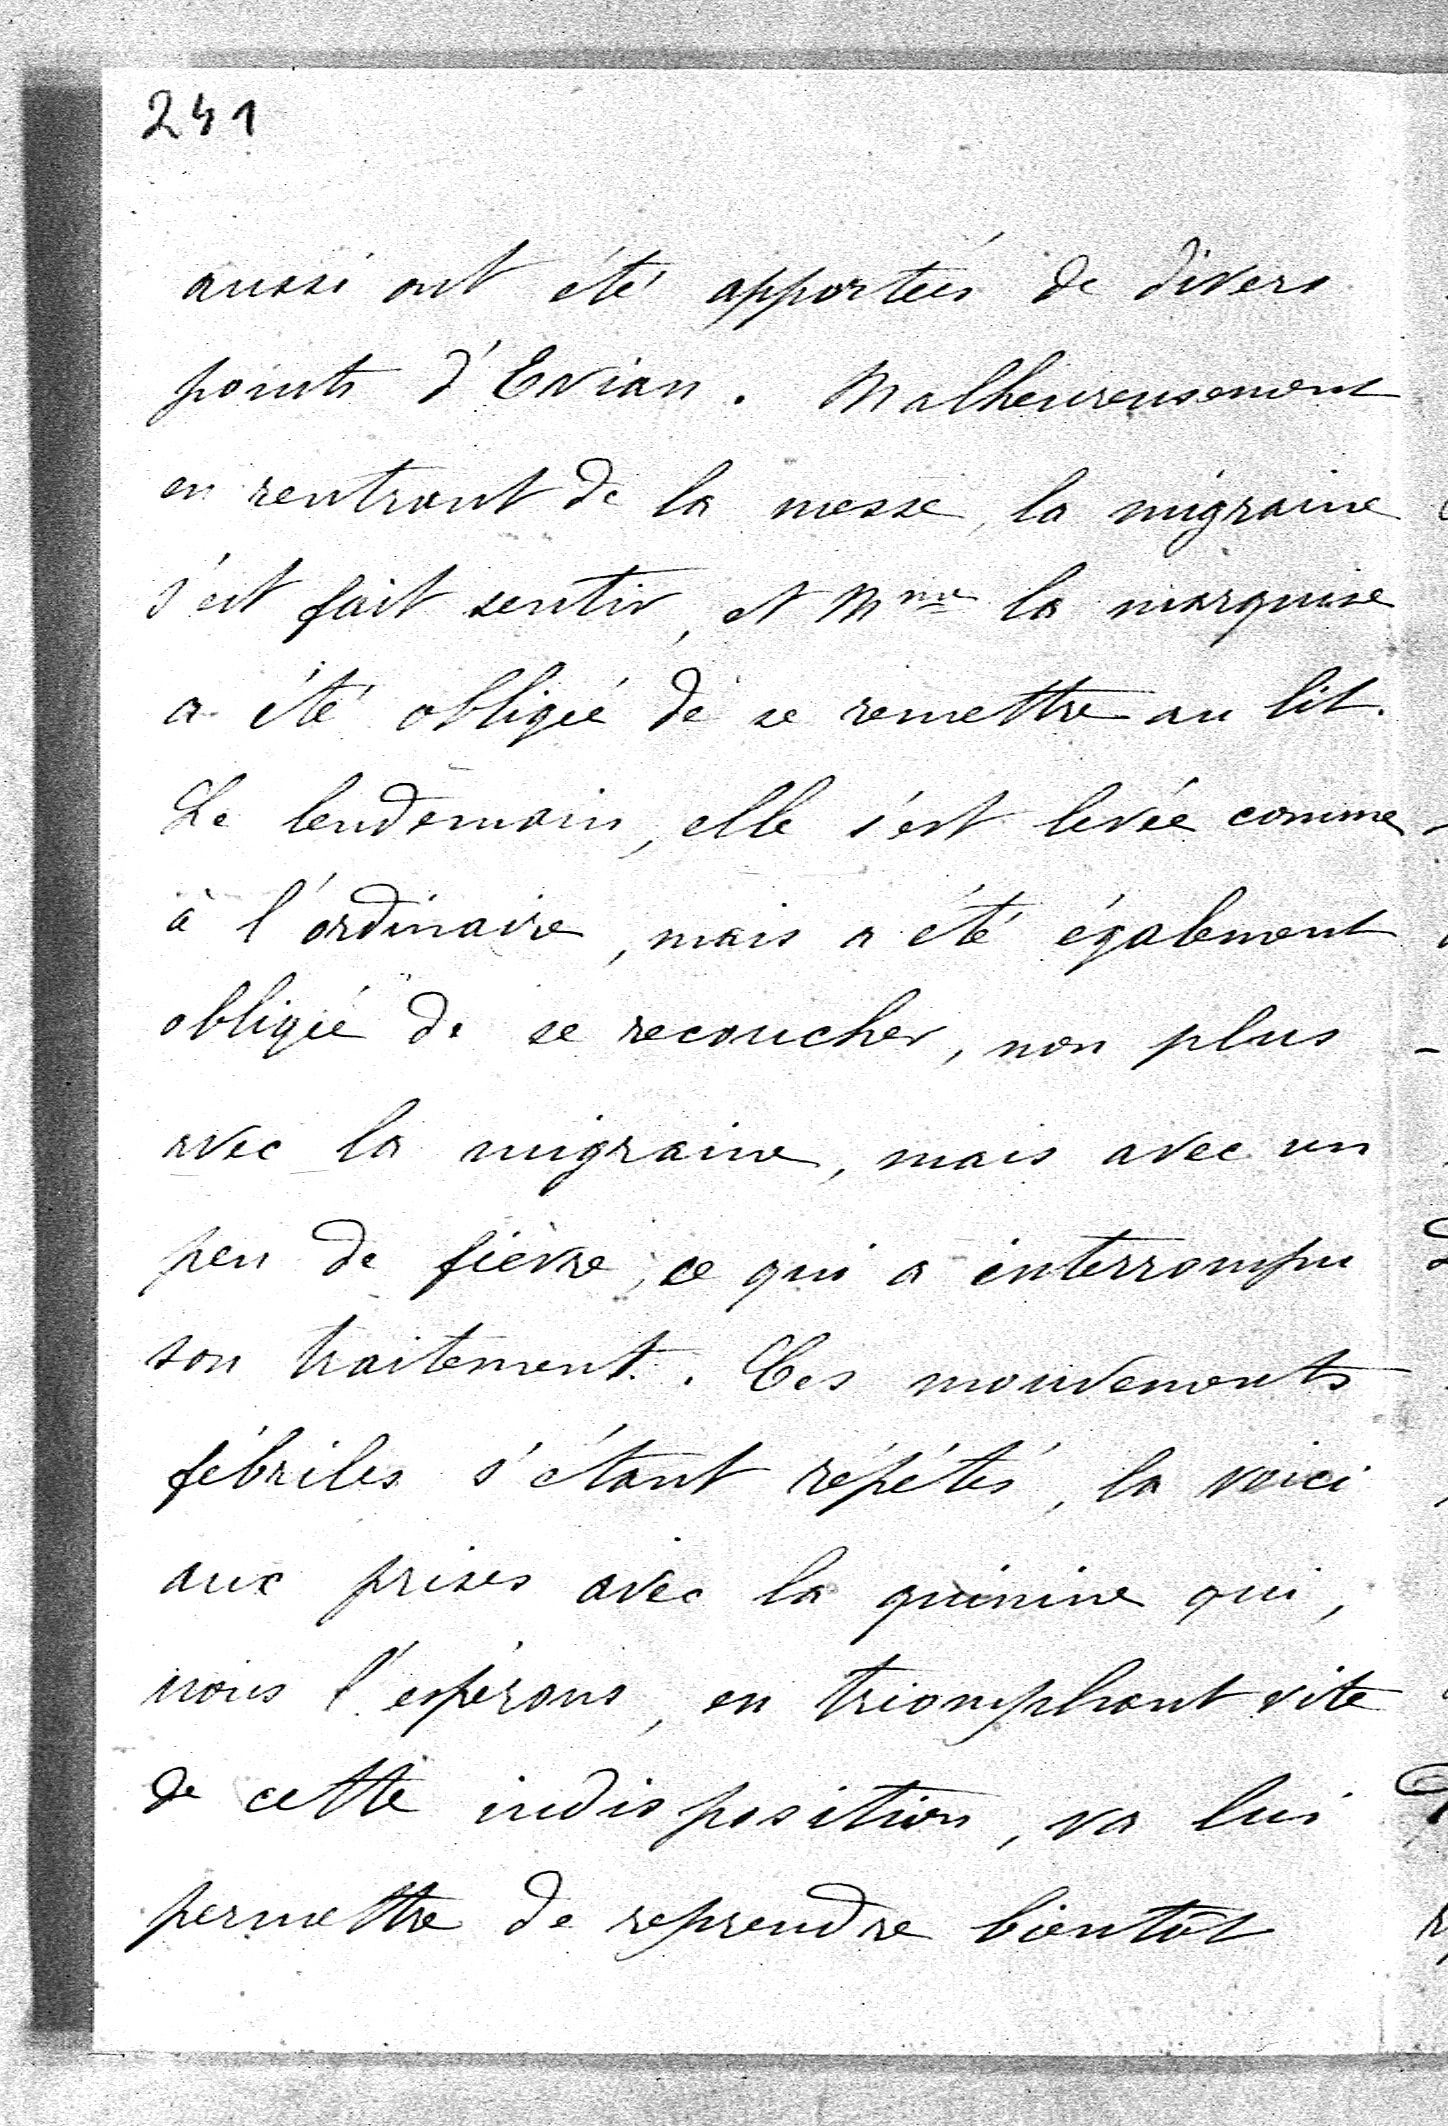 241
aussi ont été apportés de divers
points d'Evian. Malheureusement
en rentrant de la messe, la migraine
s'est fait sentir, et Mme la marquise
a été obligée de se remettre au lit.
Le lendemain, elle s'est levée comme
à l'ordinaire, mais a été également
obligée de se recoucher, non plus
avec la migraine, mais avec un
peu de fièvre, ce qui a interrompu
son traitement. Ces mouvements
fébriles s'étant répétés, la voici
aux prises avec la quinine qui,
nous l'espérons, en triomphant vite
de cette indisposition, va lui
permettre de reprendre bientôt